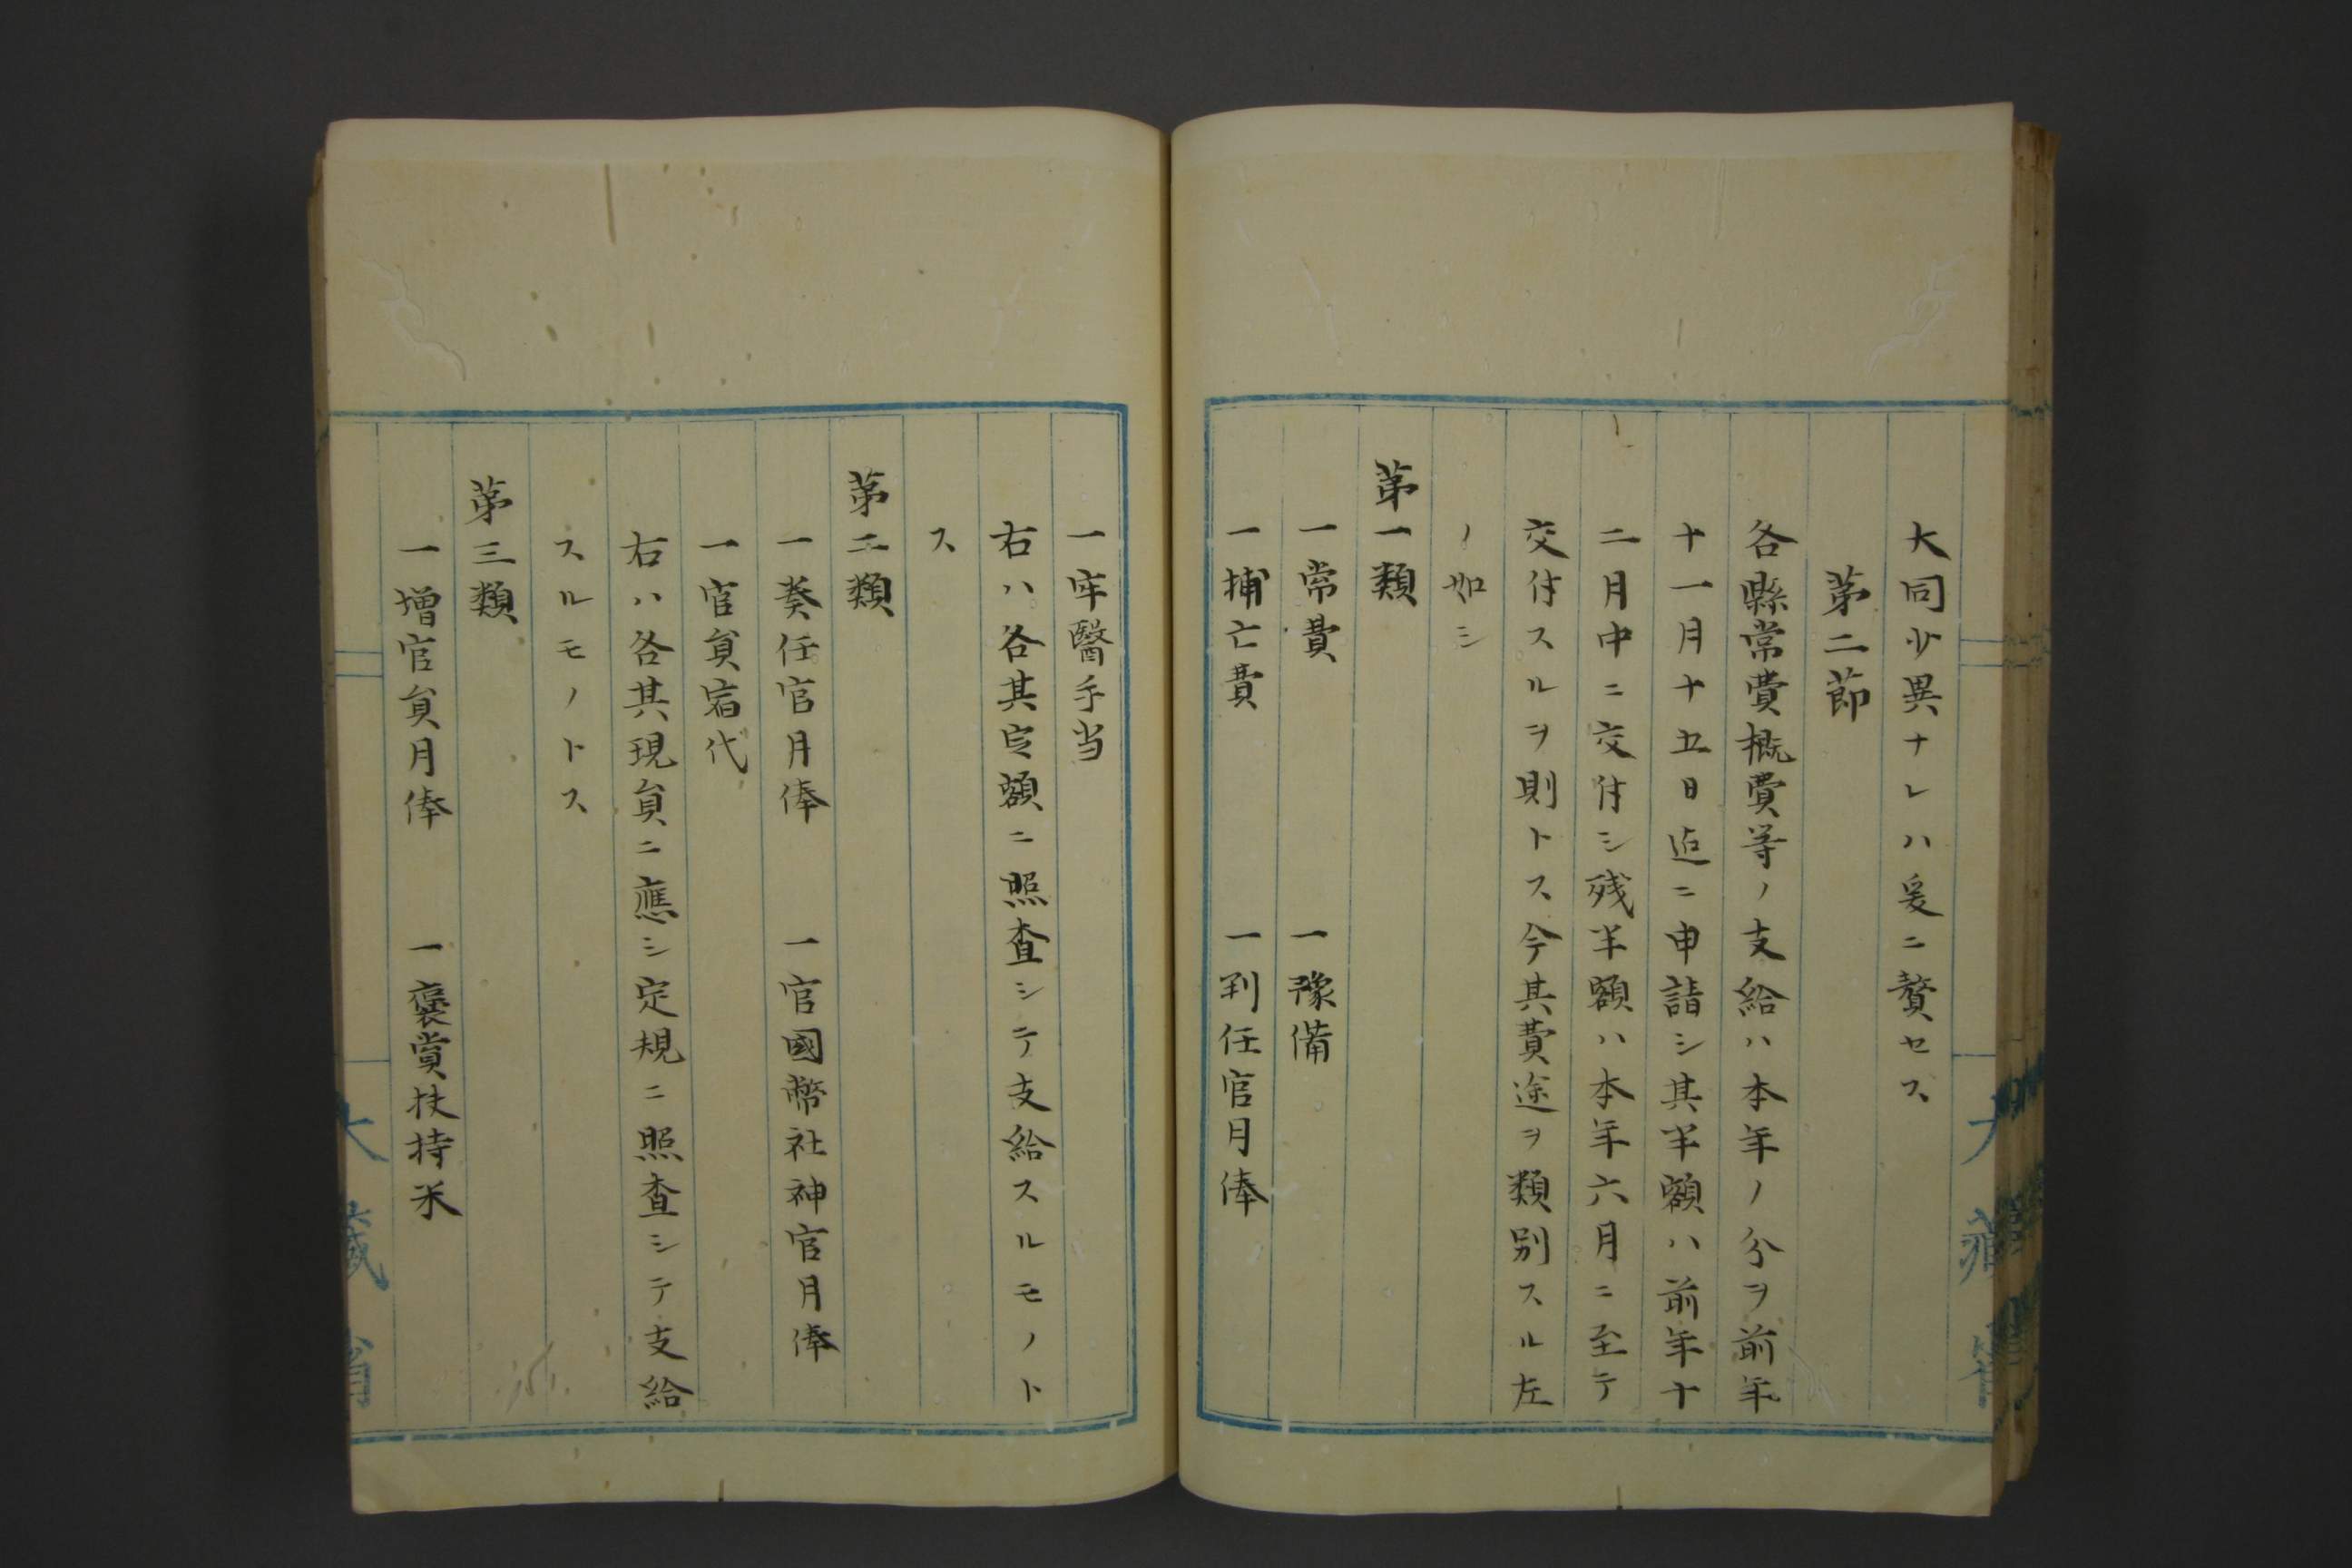 大同少異ナレハ爰ニ贅セス
第二節
各縣常費概費等ノ支給ハ本年ノ分ヲ前年
十一月十五日迠ニ申請シ其半額ハ前年十
二月中ニ交付シ残半額ハ本年六月ニ至テ
交付スルヲ則トス今其費途ヲ類別スル左
ノ如シ
第一類
一常費　一豫備
一捕亡費　一判任官月俸
大藏省
一牢醫手当
右ハ各其定額ニ照査シテ支給スルモノト
ス
第二類
一奏任官月俸　一官國幣社神官月俸
一官員宿代
右ハ各其現員ニ應シ定規ニ照査シテ支給
スルモノトス
第三類
一増官員月俸　一褒賞扶持米
大藏省